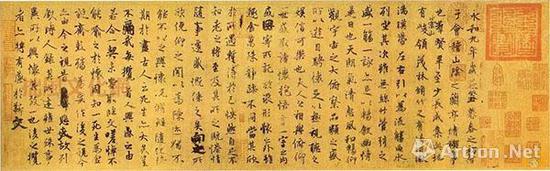 永和九年歲在癸丑暮春之初會
于會稽山陰之蘭亭脩禊事
也羣賢畢至少長咸集此地
有崇山峻領茂林脩竹又有清流激
湍暎帶左右引以為流觴曲水
列坐其次雖無絲竹管弦之
盛一觴一詠亦足以暢敘幽情
是日也天朗氣清惠風和暢仰
觀宇宙之大俯察品類之盛
所以遊目騁懷足以極視聽之
娛信可樂也夫人之相與俯仰
一世或取諸懷抱悟言一室之內
或因寄所託放浪形骸之外雖
趣舍萬殊靜躁不同當其欣
於所遇蹔得於己怏然自足不
知老之將至及其所之既惓情
隨事遷感慨係之矣向之所
欣俛仰之閒以為陳迹猶不
能不以之興懷況脩短隨化終
期於盡古人云死生亦大矣豈
不痛哉每攬昔人興感之由
若合一契未嘗不臨文嗟悼不
能喻之於懷固知一死生為虛
誕齊彭殤為妄作後之視今
亦由今之視昔悲夫故列
敘時人錄其所述雖世殊事
異所以興懷其致一也後之攬
者亦將有感於斯文
Artron.Net